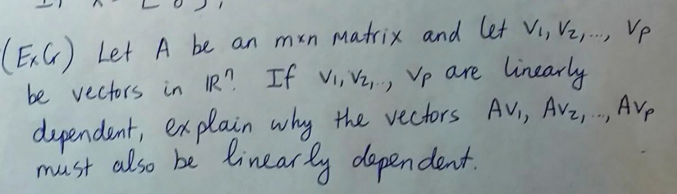 (Ex G) Let A be an mxn Matrix and let V1, V2, ..., Vp
be vectors in IR^n. If V1, V2, .., Vp are linearly
dependent, explain why the vectors AV1, AV2, .., AVp
must also be linearly dependent.